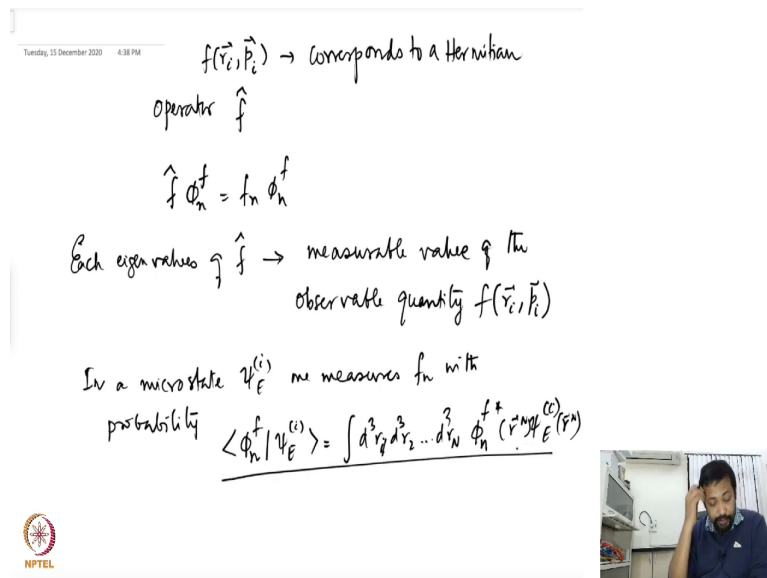 Tuesday, 15 December 2020 4:38 PM
f(r⃗ᵢ, p⃗ᵢ) → corresponds to a Hermitian
operator f̂
f̂ ϕₙᶠ = fₙ ϕₙᶠ
Each eigenvalues of f̂ → measurable value of the
observable quantity f(r⃗ᵢ, p⃗ᵢ)
In a microstate Ψ_E^(i) one measures fₙ with
probability ⟨ϕₙᶠ | Ψ_E^(i)⟩ = ∫ d³r₁ d³r₂ ... d³r_N ϕₙᶠ* (r⃗ᴺ) Ψ_E^(i) (r⃗ᴺ)
NPTEL